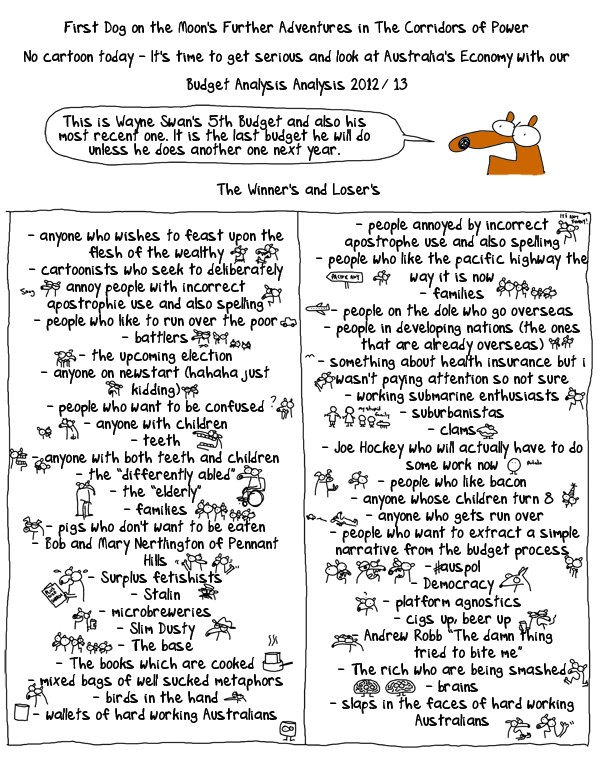 First Dog on the Moon's Further Adventures in The Corridors of Power
No cartoon today - It's time to get serious and look at Australia's Economy with our
Budget Analysis Analysis 2012/ 13
This is Wayne Swan's 5th Budget and also his
most recent one. It is the last budget he will do
unless he does another one next year.
The Winner's and Loser's
- anyone who wishes to feast upon the
flesh of the wealthy
- cartoonists who seek to deliberately
annoy people with incorrect
apostrophie use and also spelling
- people who like to run over the poor
- battlers
- the upcoming election
- anyone on newstart (hahaha just
kidding)
- people who want to be confused ?
- anyone with children
- teeth
- anyone with both teeth and children
- the "differently abled"
- the "elderly"
- families
- pigs who don't want to be eaten
- Bob and Mary Nertlington of Pennant
Hills
- Surplus fetishists
- Stalin
- microbreweries
- Slim Dusty
- The base
- The books which are cooked
- mixed bags of well sucked metaphors
- birds in the hand
- wallets of hard working Australians
- people annoyed by incorrect
apostrophe use and also spelling
- people who like the pacific highway the
way it is now
- families
- people on the dole who go overseas
- people in developing nations (the ones
that are already overseas)
- something about health insurance but i
wasn't paying attention so not sure
- working submarine enthusiasts
- suburbanistas
- clams
- Joe Hockey who will actually have to do
some work now
- people who like bacon
- anyone whose children turn 8
- anyone who gets run over
- people who want to extract a simple
narrative from the budget process
- #auspol
Democracy
- platform agnostics
- cigs up, beer up
Andrew Robb "The damn thing
tried to bite me"
- The rich who are being smashed
- brains
- slaps in the faces of hard working
Australians